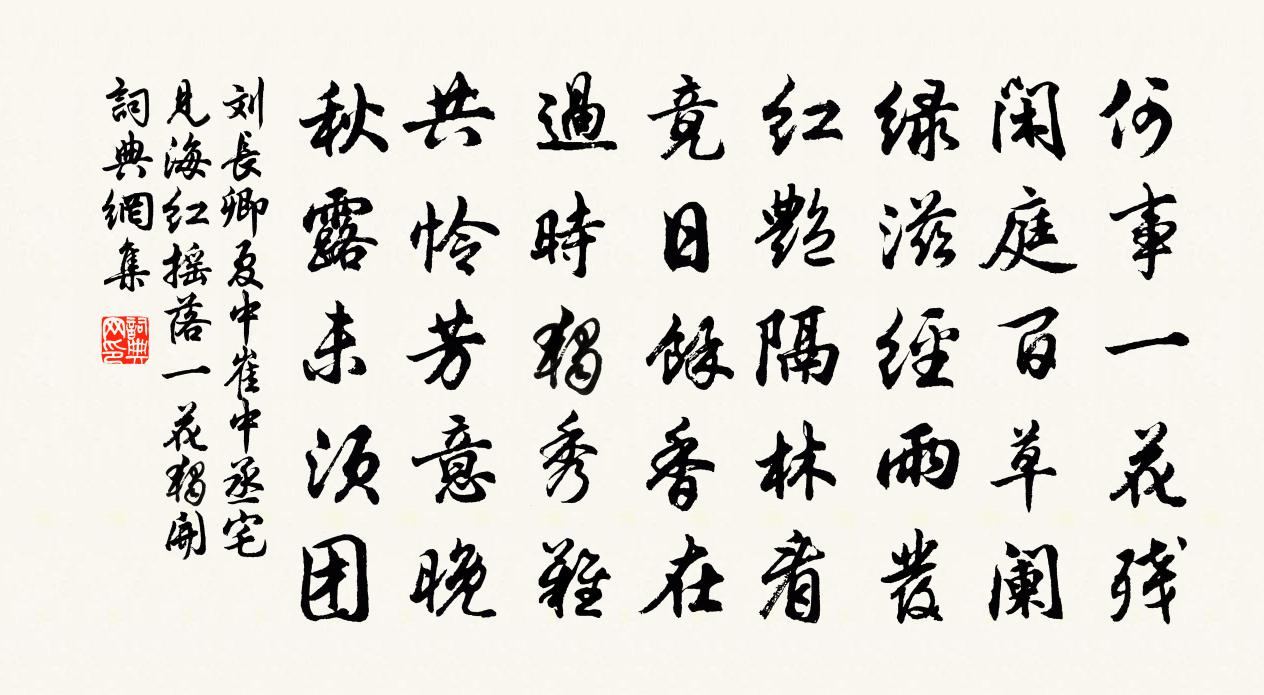 何事一花残
闲庭百草阑
绿滋經雨發
红艷隔林看
竟日餘香在
過時獨秀難
共怜芳意晚
秋露未须团
刘長卿夏中崔中丞宅
見海红摇落一花獨開
詞典網集
詞典
网印